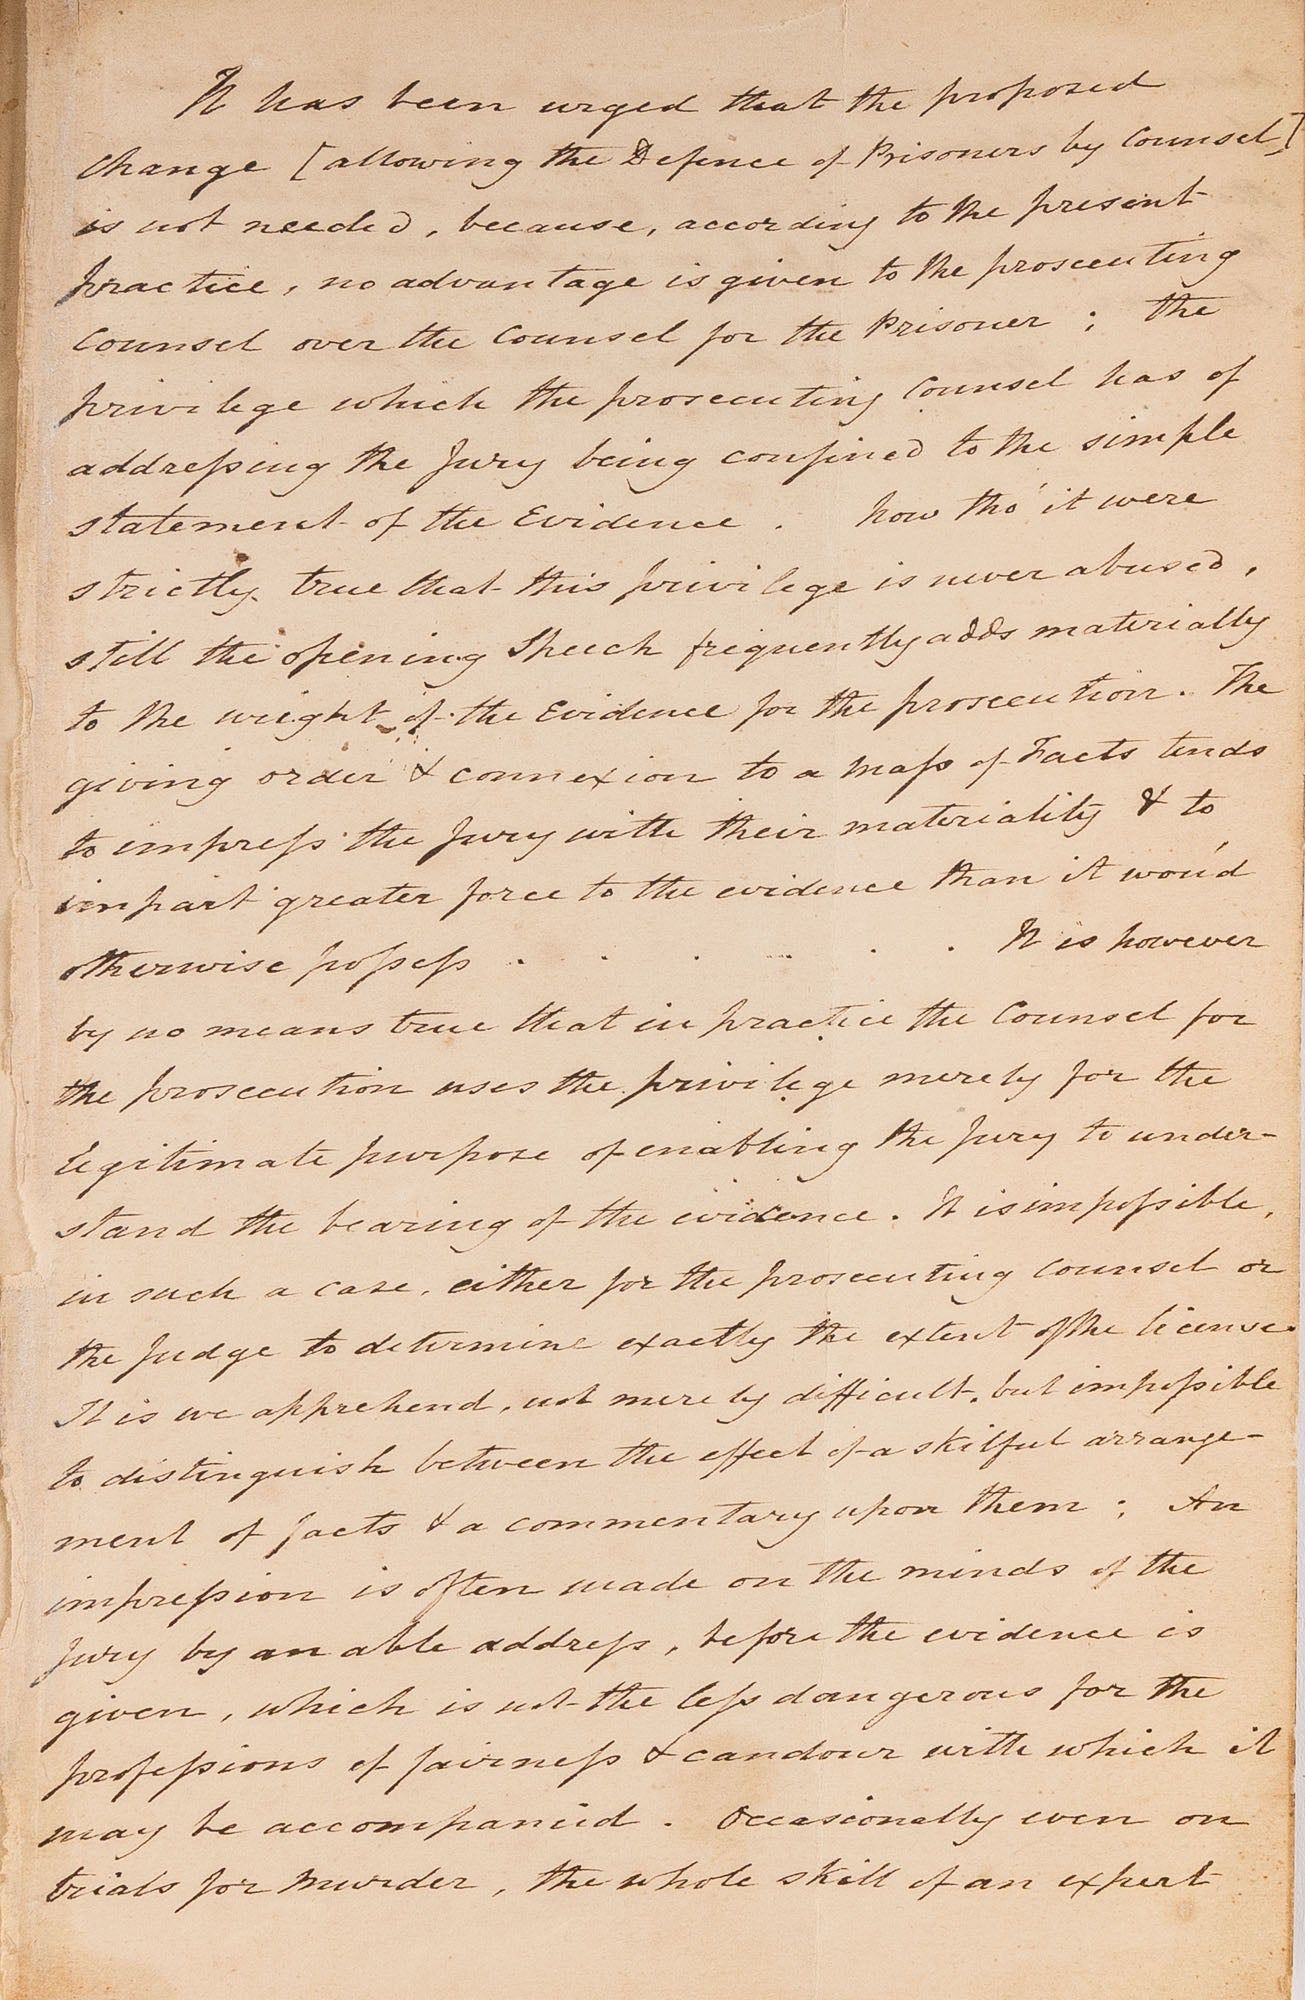 It has been urged that the proposed
change [allowing the Defence of Prisoners by Counsel,]
is not needed, because, according to the present
practice, no advantage is given to the prosecuting
Counsel over the Counsel for the Prisoner; the
privilege which the prosecuting Counsel has of
addreſsing the Jury being confined to the simple
statement of the Evidence. how tho' it were
strictly true that this privilege is never abused,
still the opening Speech frequently adds materially
to the weight of the Evidence for the prosecution. The
giving order & connexion to a maſs of Facts tends
to impreſs the Jury with their materiality & to
impart greater force to the evidence than it wou'd
otherwise poſseſs . . . . . . It is however
by no means true that in practice the Counsel for
the prosecution uses the privilege merely for the
legitimate purpose of enabling the Jury to under-
stand the bearing of the evidence. It is impoſsible,
in such a case, either for the prosecuting Counsel or
the Judge to determine exactly the extent of the license.
It is we apprehend, not merely difficult, but impoſsible
to distinguish between the effect of a skilful arrange-
ment of facts & a commentary upon them; An
impreſsion is often made on the minds of the
Jury by an able addreſs, before the evidence is
given, which is not the leſs dangerous for the
profeſsions of fairneſs & candour with which it
may be accompanied. Occasionally even on
trials for Murder, the whole skill of an expert